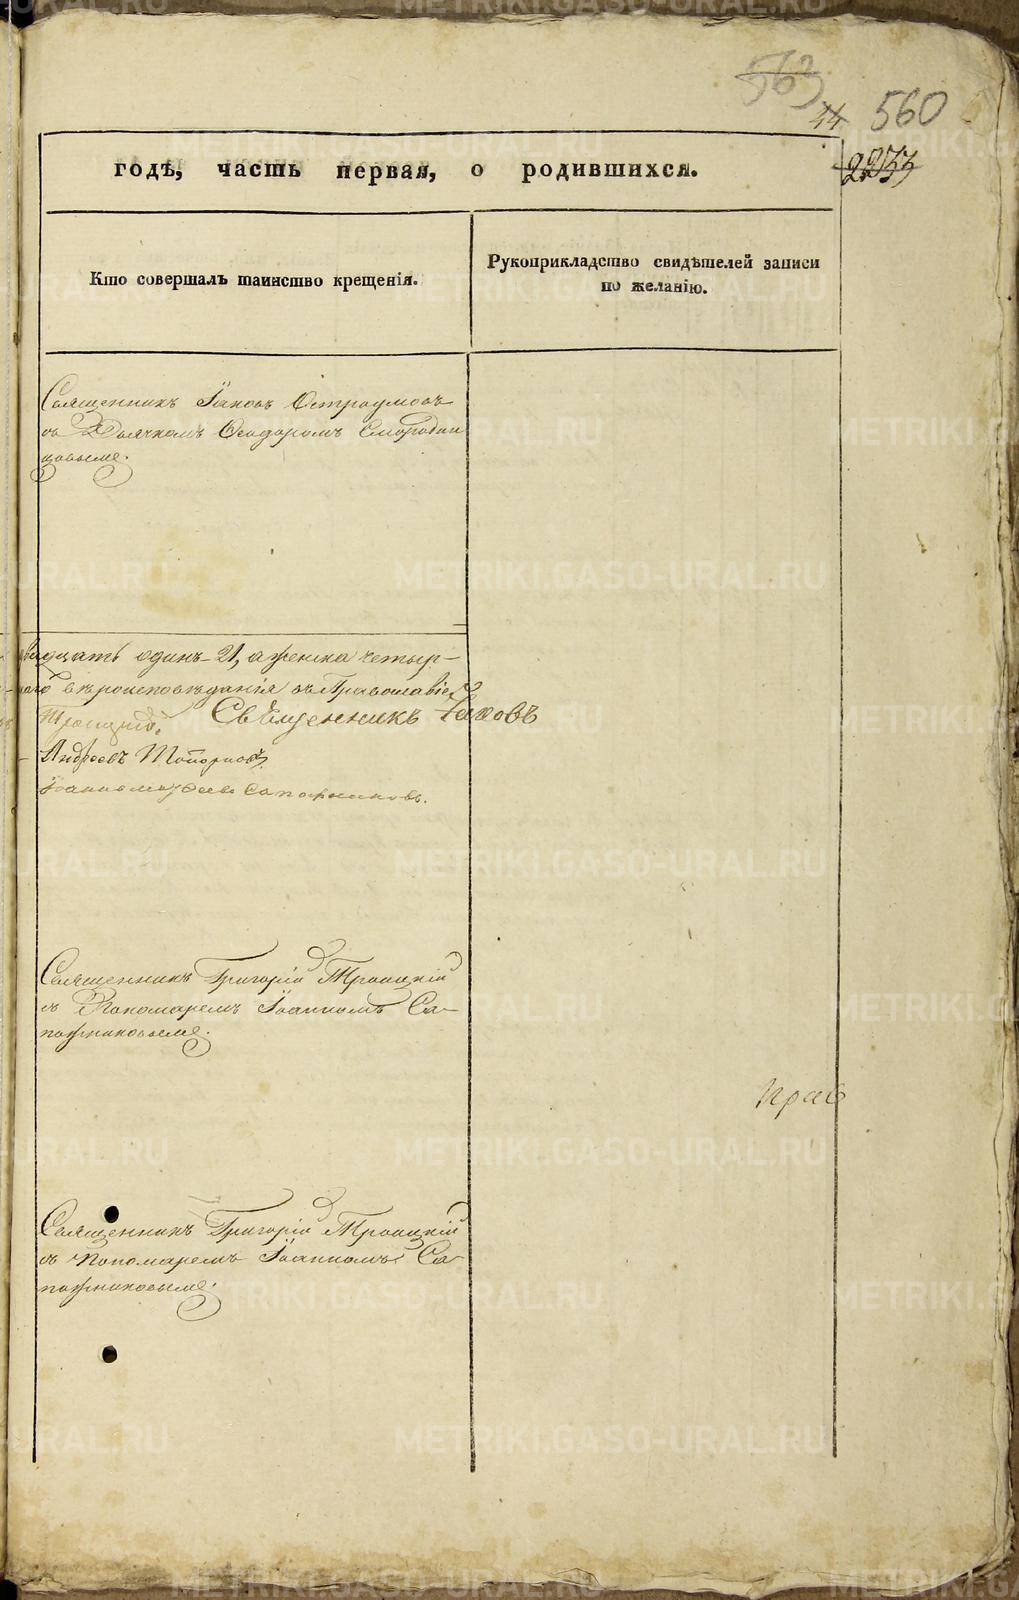 563
44 560
2233
годѣ, часть первая, о родившихся.
Кто совершалъ таинство крещенія.
Рукоприкладство свидѣтелей записи
по желанію.
Священникъ Іаковъ Остроумовъ
съ Дьячкомъ Ѳеодоромъ Смородин
цовымъ.
двадцать одинъ 21, а женска четыр-
наго вѣроисповѣданія въ Православіе
Троицкій. Свѣщенникъ Іаковъ
Андреевъ Топорковъ
Іоаннъ Сапожниковъ.
Священникъ Григорій Троицкій
съ Пономаремъ Іоанномъ Са-
пожниковымъ.
Прав
Священникъ Григорій Троицкій
съ Пономаремъ Іоанномъ Са-
пожниковымъ.
METRIKI.GASO-URAL.RU